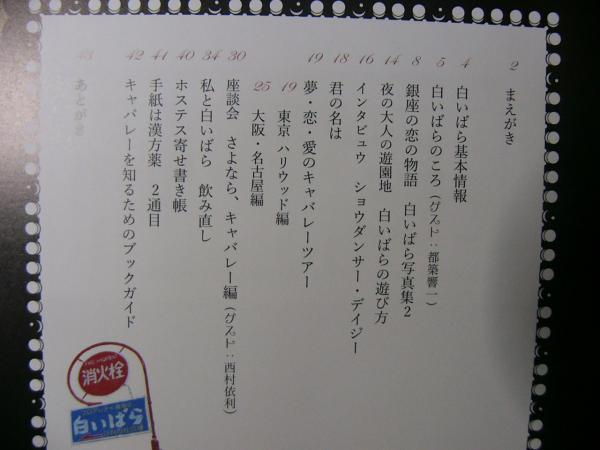 2 まえがき
4 白いばら基本情報
5 白いばらのころ（ゲスト：都築響一）
8 銀座の恋の物語 白いばら写真集2
14 夜の大人の遊園地 白いばらの遊び方
16 インタビュウ ショウダンサー・デイジー
18 君の名は
19 夢・恋・愛のキャバレーツアー
19 東京 ハリウッド編
25 大阪・名古屋編
30 座談会 さよなら、キャバレー編（ゲスト：西村依利）
34 私と白いばら 飲み直し
40 ホステス寄せ書き帳
41 手紙は漢方薬 2通目
42 キャバレーを知るためのブックガイド
43 あとがき
消火栓
白いばら